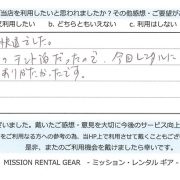 当店を利用したいと思われましたか？その他感想・ご要望が
利用したい　b. どちらともいえない　c. 利用はしない
快適でした。
テント泊だったので、今回レンタルに
ありがたかったです。
ざいました。戴いたご感想・意見を大切に今後のサービス向上
をご利用になる方への参考の為、当HP上で使用させて戴くこともござ
是非、またのご利用機会を戴けましたら幸いです。
MISSION RENTAL GEAR - ミッション・レンタル・ギア -